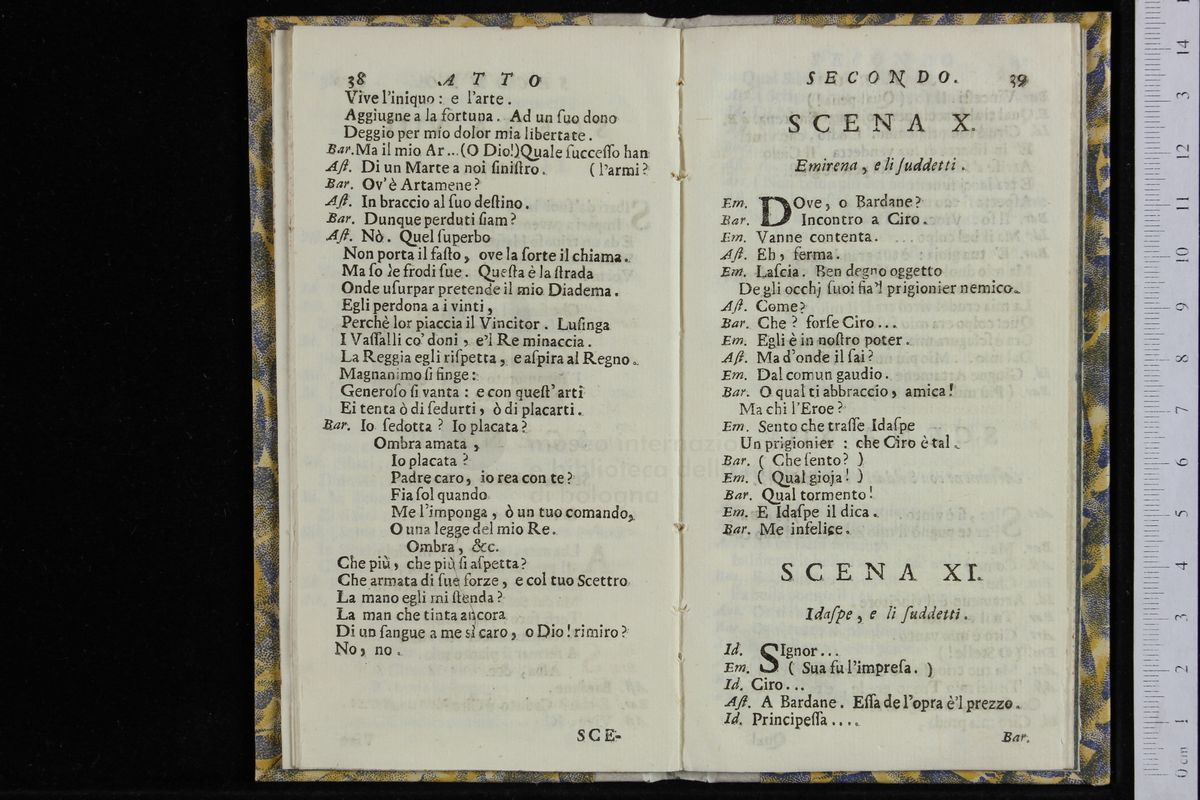 38 ATTO
Vive l'iniquo: e l'arte.
Aggiugne a la fortuna. Ad un ſuo dono
Deggio per mio dolor mia libertate.
Bar. Ma il mio Ar... (O Dio!) Quale ſucceſſo han
Aſt. Di un Marte a noi ſiniſtro. (l'armi?
Bar. Ov'è Artamene?
Aſt. In braccio al ſuo deſtino.
Bar. Dunque perduti ſiam?
Aſt. Nò. Quel ſuperbo
Non porta il faſto, ove la ſorte il chiama.
Ma ſo le frodi ſue. Queſta è la ſtrada
Onde uſurpar pretende il mio Diadema.
Egli perdona a i vinti,
Perchè lor piaccia il Vincitor. Luſinga
I Vaſſalli co' doni, e'l Re minaccia.
La Reggia egli riſpetta, e aſpira al Regno.
Magnanimo ſi finge:
Generoſo ſi vanta: e con queſt' arti
Ei tenta ò di ſedurti, ò di placarti.
Bar. Io ſedotta? Io placata?
Ombra amata,
Io placata?
Padre caro, io rea con te?
Fia ſol quando
Me l'imponga, ò un tuo comando,
O una legge del mio Re.
Ombra, &c.
Che più, che più ſi aſpetta?
Che armata di ſue forze, e col tuo Scettro
La mano egli mi ſtenda?
La man che tinta ancora
Di un ſangue a me sì caro, o Dio! rimiro?
No, no.
SCE-
SECONDO. 39
SCENA X.
Emirena, e li ſuddetti.
Em. DOve, o Bardane?
Bar. Incontro a Ciro.
Em. Vanne contenta.
Aſt. Eh, ferma.
Em. Laſcia. Ben degno oggetto
De gli occhj ſuoi ſia'l prigionier nemico.
Aſt. Come?
Bar. Che? forſe Ciro...
Em. Egli è in noſtro poter.
Aſt. Ma d'onde il ſai?
Em. Dal comun gaudio.
Bar. O qual ti abbraccio, amica!
Ma chi l'Eroe?
Em. Sento che traſſe Idaſpe
Un prigionier: che Ciro è tal.
Bar. (Che ſento?)
Em. (Qual gioja!)
Bar. Qual tormento!
Em. E Idaſpe il dica.
Bar. Me infelice.
SCENA XI.
Idaſpe, e li ſuddetti.
Id. SIgnor...
Em. (Sua fu l'impreſa.)
Id. Ciro...
Aſt. A Bardane. Eſſa de l'opra è'l prezzo.
Id. Principeſſa....
Bar.